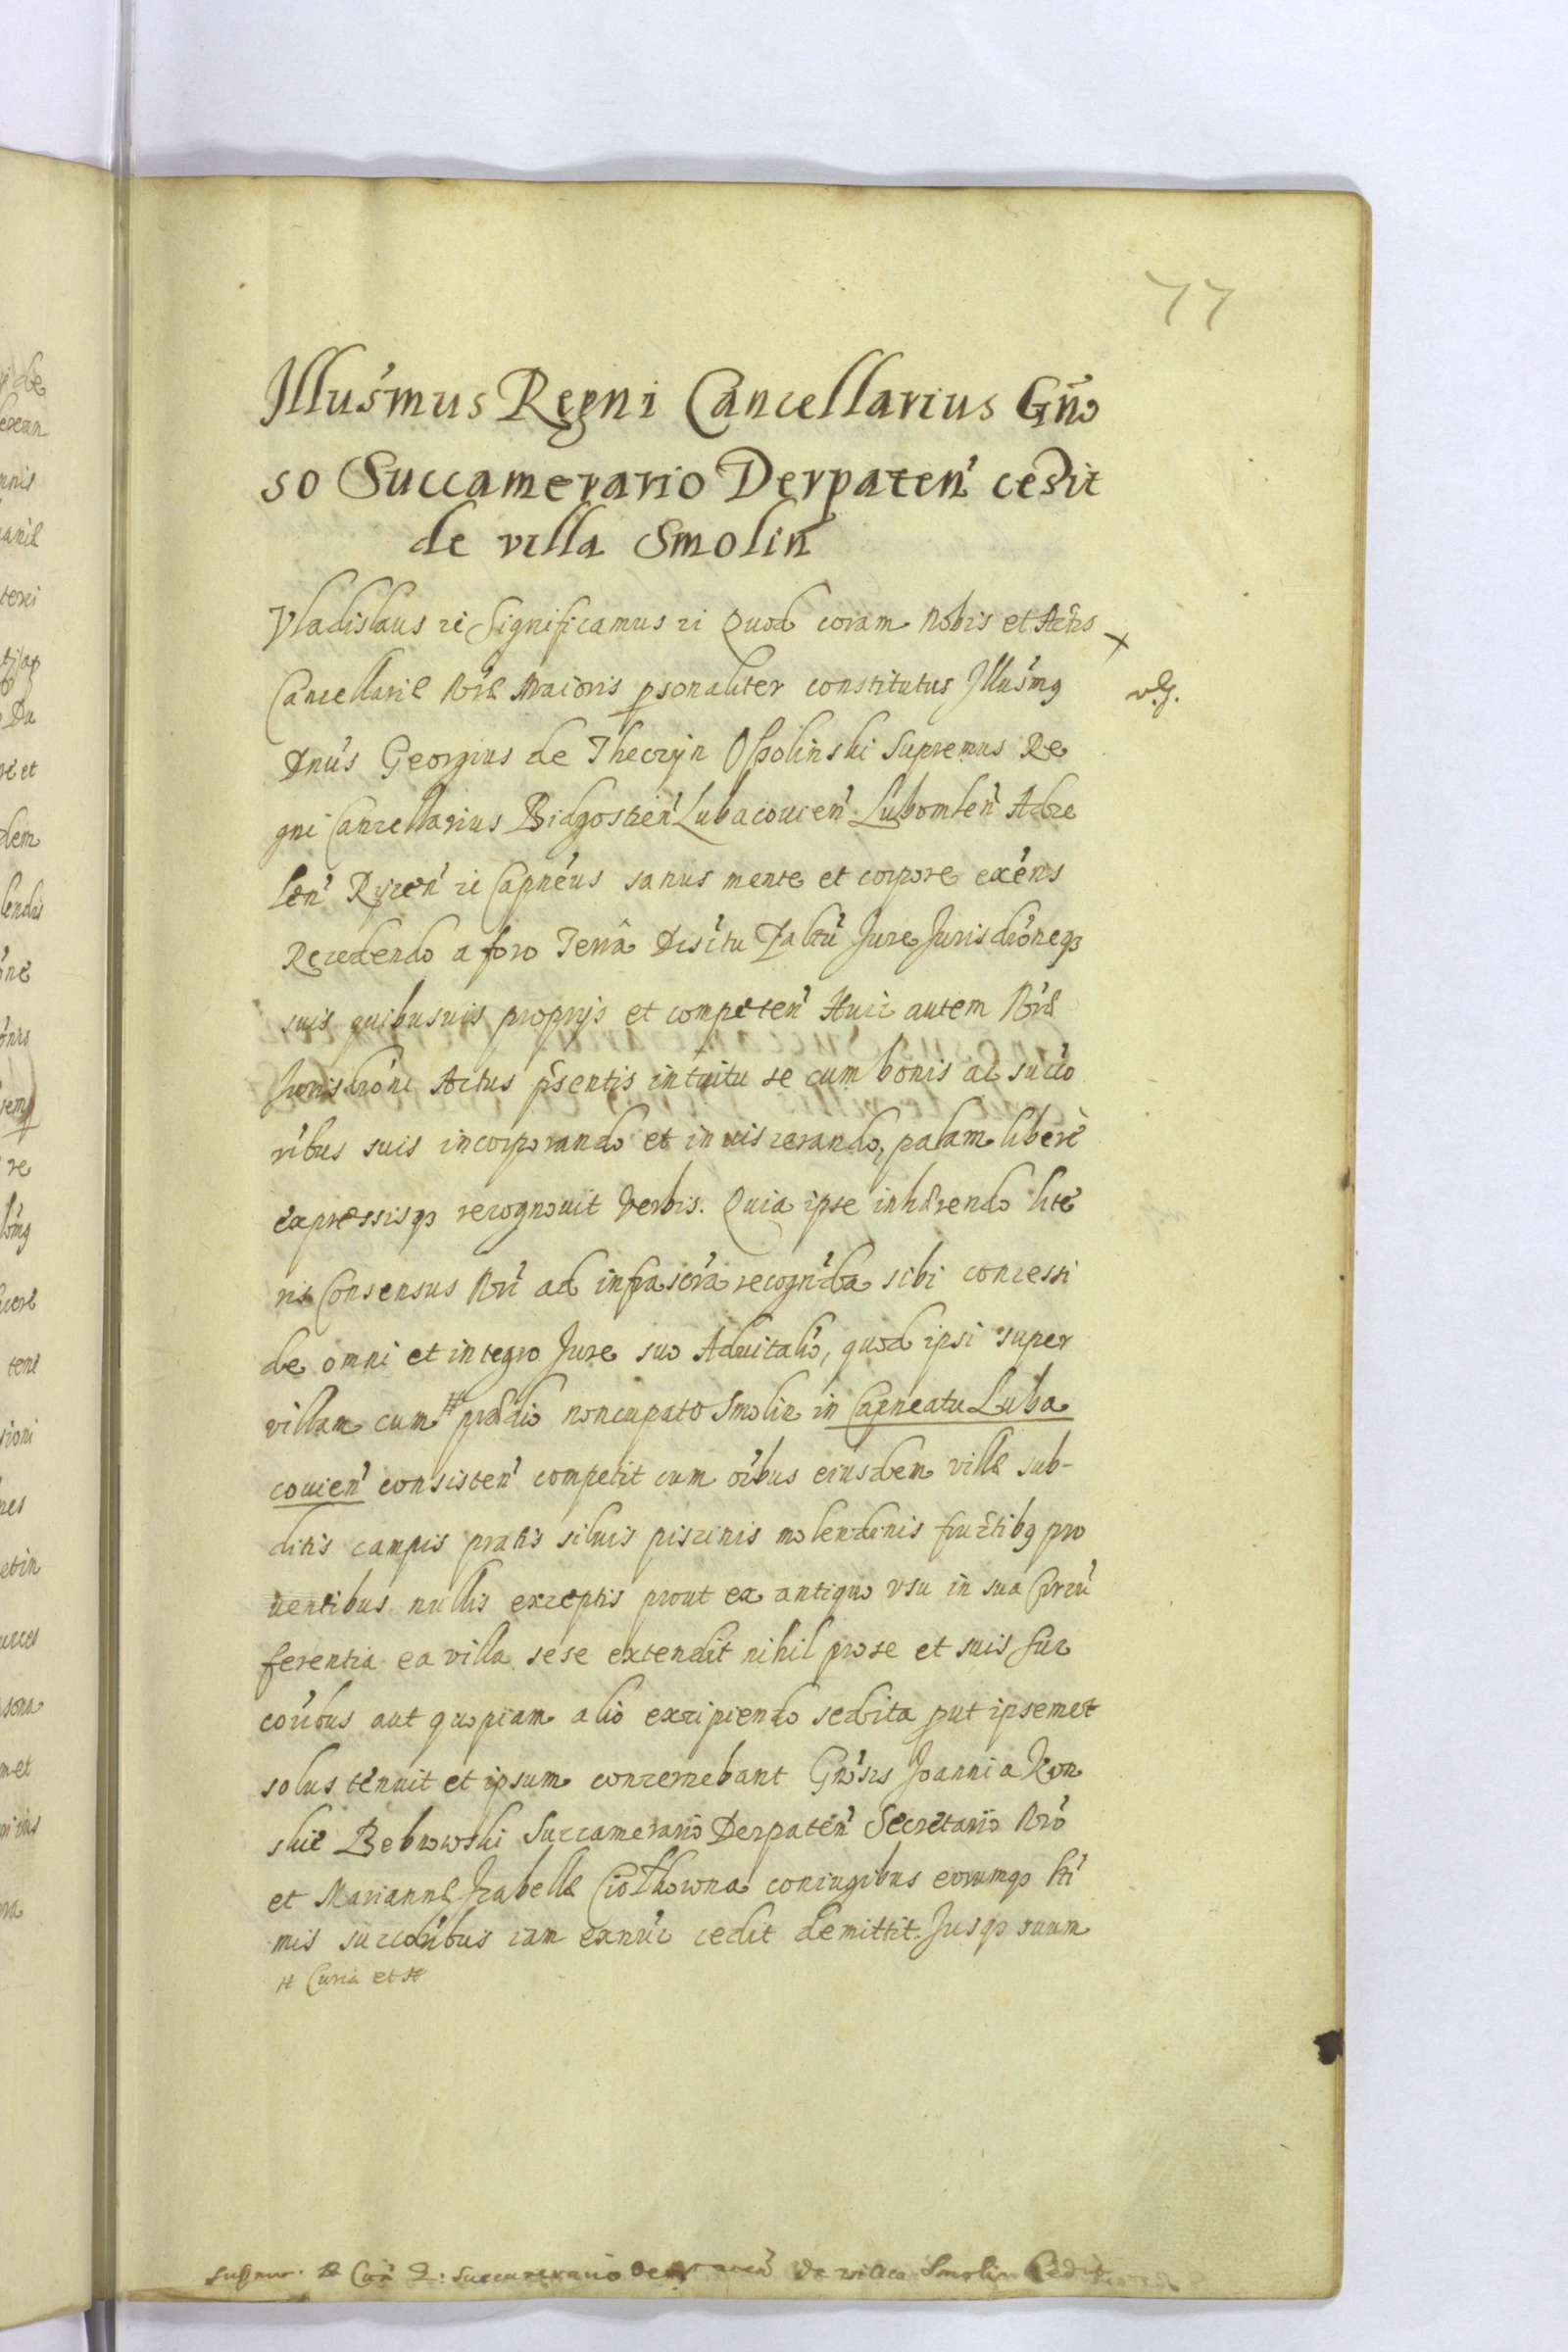 77
Illus̃mus Regni Cancellarius Gño
so Succamerario Derpateñ cedit
de villa Smolin
Vladislaus etc Significamus etc Quod coram Nobis et Actis
Cancellariæ Nr̃æ Maioris psonaliter constitutus Illus̃mq
Dnũs Georgius de Thecyn Ossolinski Supremus Re
gni Cancellarius Bidgostieñ Lubacovieñ Lubomleñ Adze
leñ Ryceñ etc Capñeus sanus mente et corpore exẽns
Recedendo a foro Terrã Disĩtu Palãtũ Jure Jurisdĩoneq3
suis quibusuis proprijs et competeñ Huic autem Nr̃æ
Jurisdĩoni Actus p̃sentis intuitu se cum bonis ac succo
ribus suis incorporando et inuiscerando, palam liberè
expressisq3 recognouit verbis. Quia ipse inhærendo lite
ris Consensus Nr̃i ad infrascr̃a recogñda sibi concessi
de omni et integro Jure suo Aduitalĩo, quod ipsi super
villam cum # prædio noncupato Smolin in Capneatu Luba
couieñ consisteñ competit cum oĩbus eiusdem villæ sub-
ditis campis pratis siluis piscinis molendinis fructibq pro
uentibus nullis exceptis prout ex antiquo vsu in sua Circũ
ferentia ea villa sese extendit nihil pro se et suis suc
coribus aut quopiam alio excipiendo sed ita put ipsemet
solus tenuit et ipsum concernebant Gñosis Joanni a Kon
skie Bebnowski Succamerario Derpateñ Secretario Nr̃o
et Mariannæ Izabellæ Ciołkowna coniugibus eorumq3 ltĩ
mis succoribus iam exnũc cedit demittit. Jusq3 suum
# Curia et #
vg.
de villa Smolin Cedit